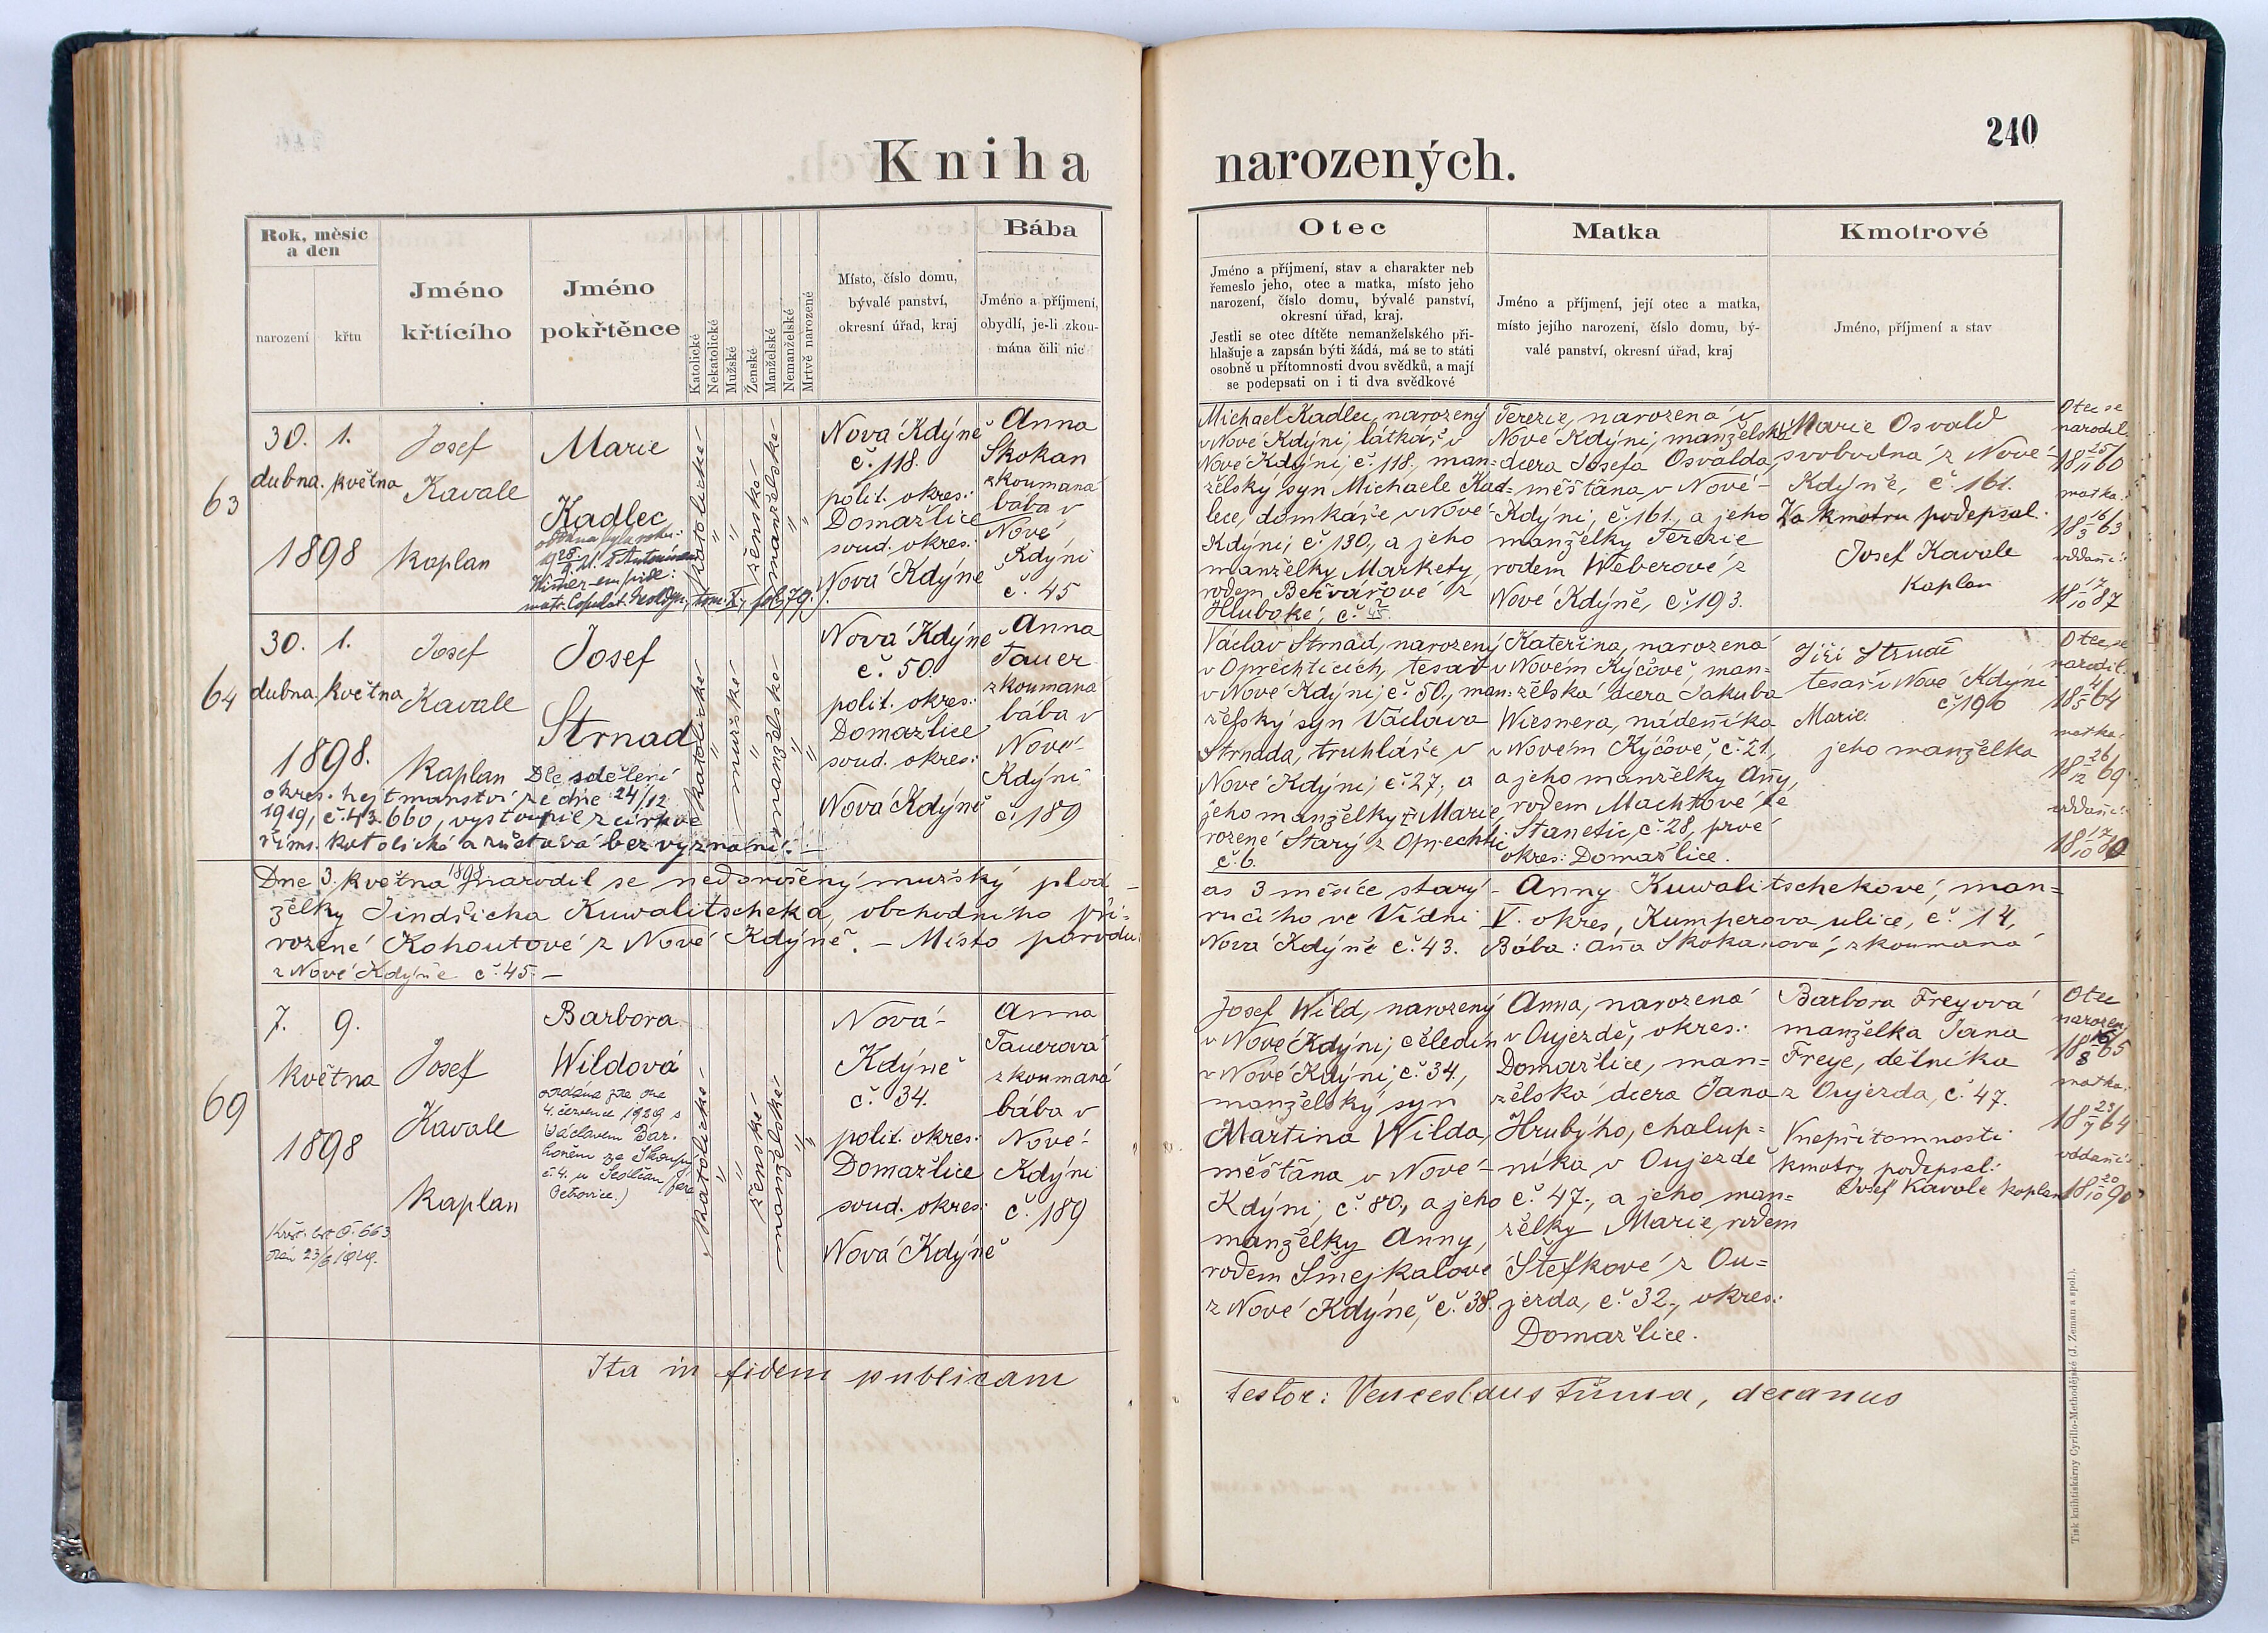 Kniha
Rok, měsíc
a den
narození
křtu
Jméno
křtícího
Jméno
pokřtěnce
Katolické
Nekatolické
Mužské
Ženské
Manželské
Nemanželské
Mrtvě narozené
Místo, číslo domu,
bývalé panství,
okresní úřad, kraj
Bába
Jméno a příjmení,
obydlí, je-li zkou-
mána čili nic
63
30.
dubna.
1.
května
1898
Josef
Kavale
kaplan
Marie
Kadlec
matr. Copulat. Neodgn. tom. X, fol. 79.
katolické
"
"
ženské
manželské
"
"
Nová Kdýně
č. 118.
polit. okres:
Domažlice
soud. okres:
Nová Kdýně
Anna
Skokan
zkoumaná
bába v
Nové
Kdýni
č. 45
64
30.
dubna.
1.
května
1898.
Josef
Kavale
kaplan
Josef
Strnad
Dle sdělení
okres. hejtmanství ze dne 24/12
1919, č. 43.660, vystoupil z církve
řims. katolické a zůstává bez vyznání. —
katolické
"
mužské
"
manželské
"
"
Nová Kdýně
č. 50.
polit. okres:
Domažlice
soud. okres:
Nová Kdýně
Anna
Tauer
zkoumaná
bába v
Nové-
Kdýni
č. 189
Dne 3. května 1898 narodil se nedonošený mužský plod —
želky Jindřicha Kuwalitscheka, obchodního pří-
rozené Kohoutové z Nové Kdýně. — Místo porodu:
z Nové Kdýně č. 45. —
69
7.
května
9.
1898
Josef
Kavale
kaplan
Barbora
Wildová
oddána
4. července 1929 s
Václavem Bar-
č. 4. u Sedlčan (fara
Petrovice.)
Křst. list č. 663
dán 23/6 1929.
katolické
"
"
ženské
manželské
"
"
Nová-
Kdýně
č. 34.
polit. okres:
Domažlice
soud. okres:
Nová Kdýně
Anna
Tauerová
zkoumaná
bába v
Nové-
Kdýni
č. 189
Ita in fidem publicam
240
narozených.
Otec
Jméno a příjmení, stav a charakter neb
řemeslo jeho, otec a matka, místo jeho
narození, číslo domu, bývalé panství,
okresní úřad, kraj.
Jestli se otec dítěte nemanželského při-
hlašuje a zapsán býti žádá, má se to státi
osobně u přítomnosti dvou svědků, a mají
se podepsati on i ti dva svědkové
Matka
Jméno a příjmení, její otec a matka,
místo jejího narození, číslo domu, bý-
valé panství, okresní úřad, kraj
Kmotrové
Jméno, příjmení a stav
Michael Kadlec, narozený
v Nové Kdýni, látkář v
Nové Kdýni, č. 118., man-
želský syn Michaele Kad-
lece, domkáře v Nové-
Kdýni, č. 130., a jeho
manželky Markety,
rodem Bečvářové z
Hluboké, č.
Terezie, narozená v
Nové Kdýni, manželská
dcera Josefa Osvalda,
měštana v Nové-
Kdýni, č. 161., a jeho
manželky Terezie
rodem Weberové z
Nové Kdýně, č. 193.
Marie Osvald
svobodná z Nové-
Kdýně, č. 161.
Za kmotru podepsal:
Josef Kavale
kaplan
Otec se
narodil:
18 25/11 60
matka:
18 16/3 63
oddaní:
18 17/10 87
Václav Strnad, narozený
v Oprechticích, tesař
v Nové Kdýni, č. 50., man-
želský syn Václava
Strnada, truhláře v
Nové Kdýni, č. 27, a
jeho manželky Marie,
rozené Starý z Oprechtic
č. 6.
Kateřina, narozená
v Novém Kýčově, man-
želská dcera Jakuba
Wiesnera, nádeníka
v Novém Kýčově, č. 21.,
a jeho manželky Anny,
rodem Machtové ze
Stanětic, č. 28, prvé
okres: Domažlice.
Jiří Strnad
tesař v Nové Kdýni
č. 190
Marie
jeho manželka
Otec se
narodil:
18 4/5 64
matka:
18 26/12 69
oddaní:
18 17/10
as 3 měsíce starý — Anny Kuwalitschekové, man-
ručího ve Vídni V. okres, Kumperova ulice, č. 14,
Nová Kdýně č. 43. Bába: Anna Skokanová, zkoumaná
Josef Wild, narozený
v Nové Kdýni, čeledín
v Nové Kdýni, č. 34.,
manželský syn
Martina Wilda,
měštana v Nové-
Kdýni, č. 80., a jeho
manželky Anny,
rodem Šmejkalové
z Nové Kdýně, č. 38.
Anna, narozená
v Oujezdě, okres:
Domažlice, man-
želská dcera Jana
Hrubýho, chalup-
níka v Oujezdě
č. 47., a jeho man-
želky Marie, rodem
Štefkové z Ou-
jezda, č. 32., okres:
Domažlice.
Barbora Freyová
manželka Jana
Freye, dělníka
z Oujezda, č. 47.
V nepřítomnosti
kmotry podepsal:
Josef Kavale kaplan
Otec
narozen
matka:
18 23/7 64
oddaní:
18 20/10 90
testor: Venceslaus Tůma, decanus
Tisk knihtiskárny Cyrillo-Methodějské (J. Zeman a spol.).